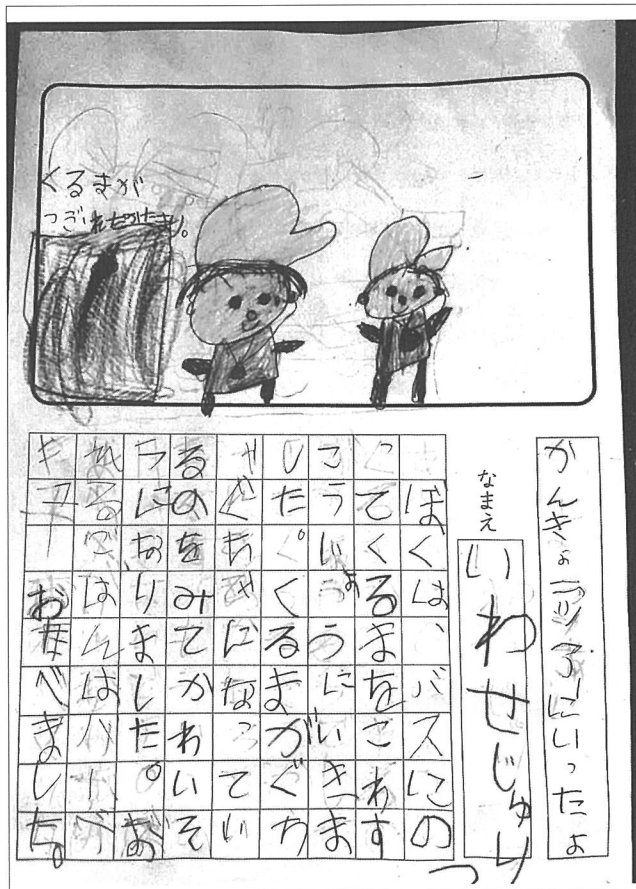 くるまが
つぶれたかたまり。
かんきょうツアーにいったよ
なまえ
いわせじゅり
ぼくは、バスにの
ってくるまをこわす
こうじょうにいきま
した。くるまがぐち
ゃぐちゃになってい
るのをみてかわいそ
うになりました。お
ひるごはんはバーベ
キューおたべました。